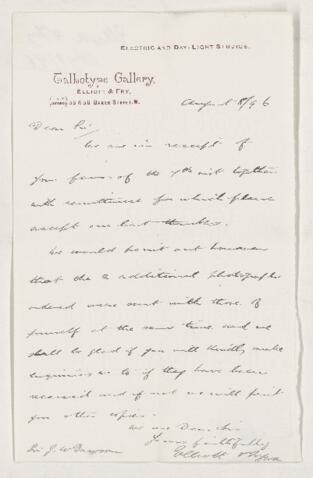 ELECTRIC AND DAY-LIGHT STUDIOS.
Talbotype Gallery,
ELLIOTT & FRY,
55 & 56 BAKER STREET, W.
August 8/96
Dear Sir/
We are in receipt of
your favor of the 7th inst together
with remittance for which please
accept our best thanks.
We would point out however
that the 2 additional photographs
ordered were sent with those of
yourself at the same time and we
shall be glad if you will kindly make
enquiries as to if they have been
received and if not we will print
you other copies.
We are Dear Sir
Yours faithfully
Elliott & Fry
Sir J. W Dawson